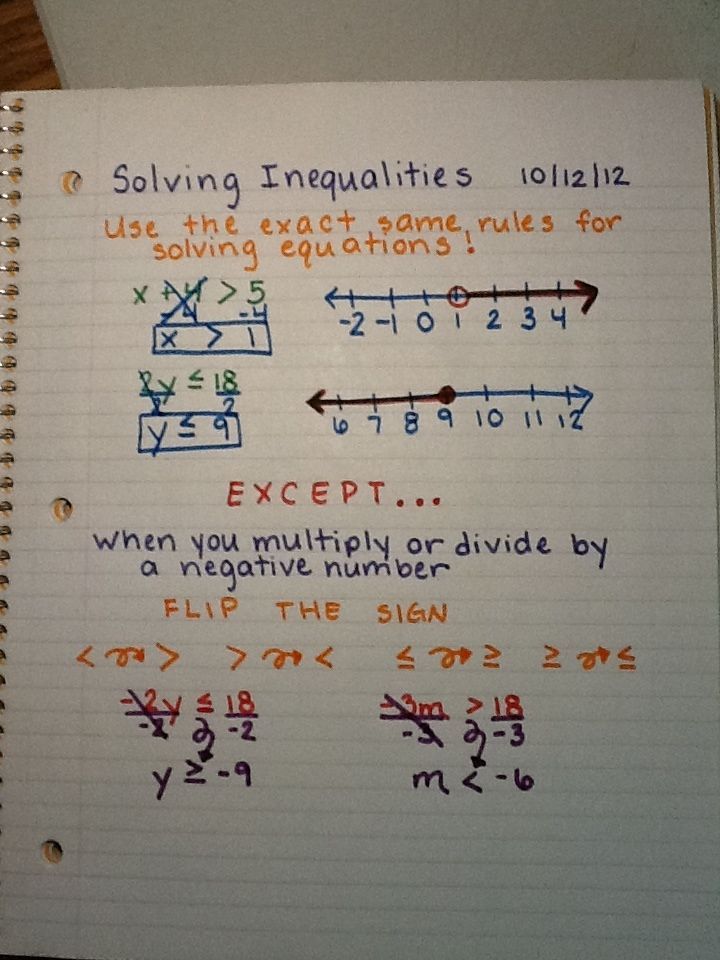 Solving Inequalities 10/12/12
Use the exact same rules for
solving equations!
x + 4 > 5
-4 -4
x > 1
-2 -1 0 1 2 3 4
2y ≤ 18
2 2
y ≤ 9
6 7 8 9 10 11 12
EXCEPT...
when you multiply or divide by
a negative number
FLIP THE SIGN
< → > > → < ≤ → ≥ ≥ → ≤
-2y ≤ 18 -3m > 18
-2 -2 -3 -3
y ≥ -9 m < -6